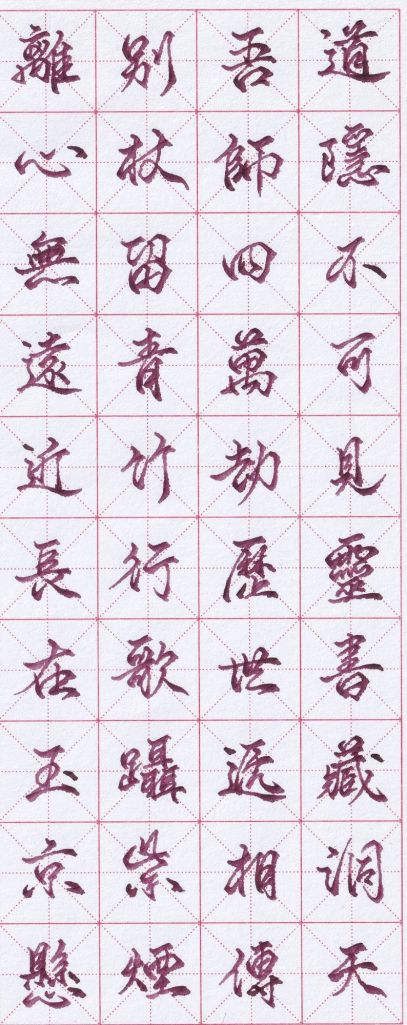 道隱不可見靈書藏洞天
吾師四萬劫歷世遞相傳
別杖留青竹行歌躡紫煙
離心無遠近長在玉京懸